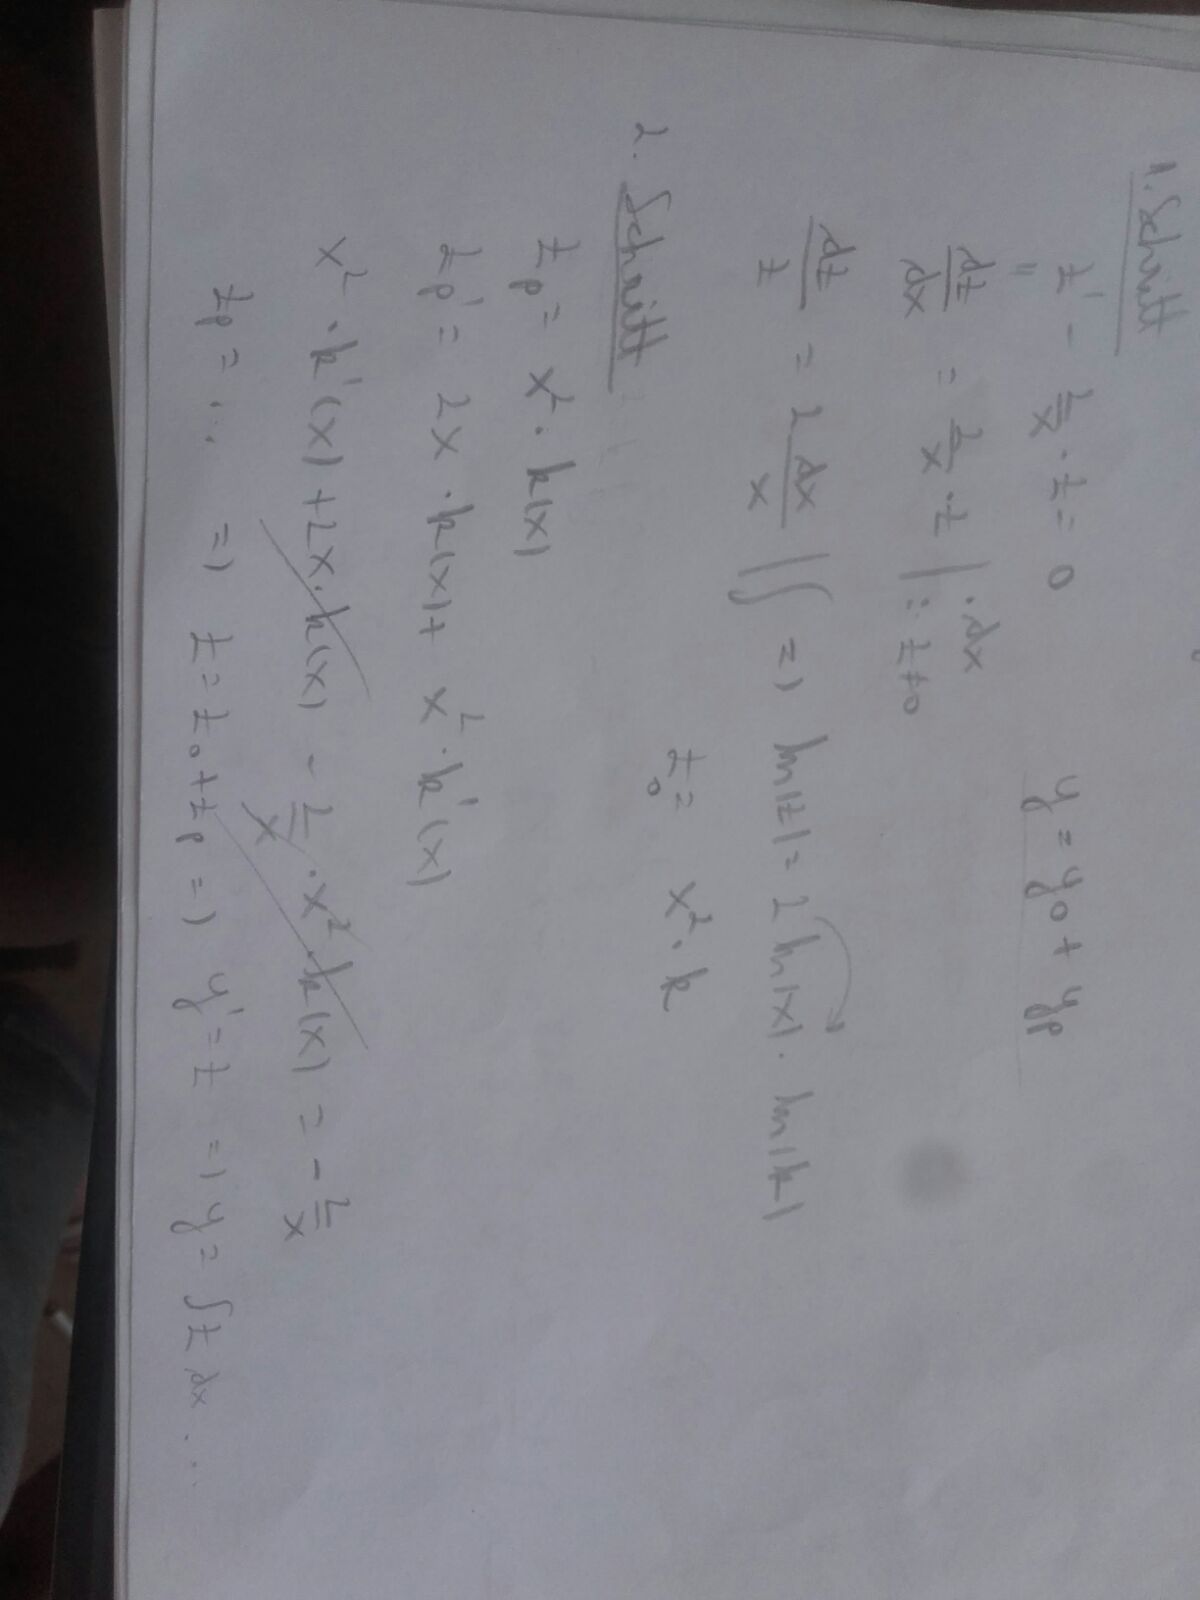 1. Schritt
z' - 2/x · z = 0    y = y₀ + yₚ
"
dz/dx = 2/x · z | · dx
: z ≠ 0
dz/z = 2 dx/x | ∫ => ln|z| = 2 ln|x| · ln|k|
z₀ = x² · k
2. Schritt
zₚ = x² · k(x)
zₚ' = 2x · k(x) + x² · k'(x)
x² · k'(x) + 2x · k(x) - 2/x · x² · k(x) = - 2/x
zₚ = ... => z = z₀ + zₚ => y' = z => y = ∫ z dx ...